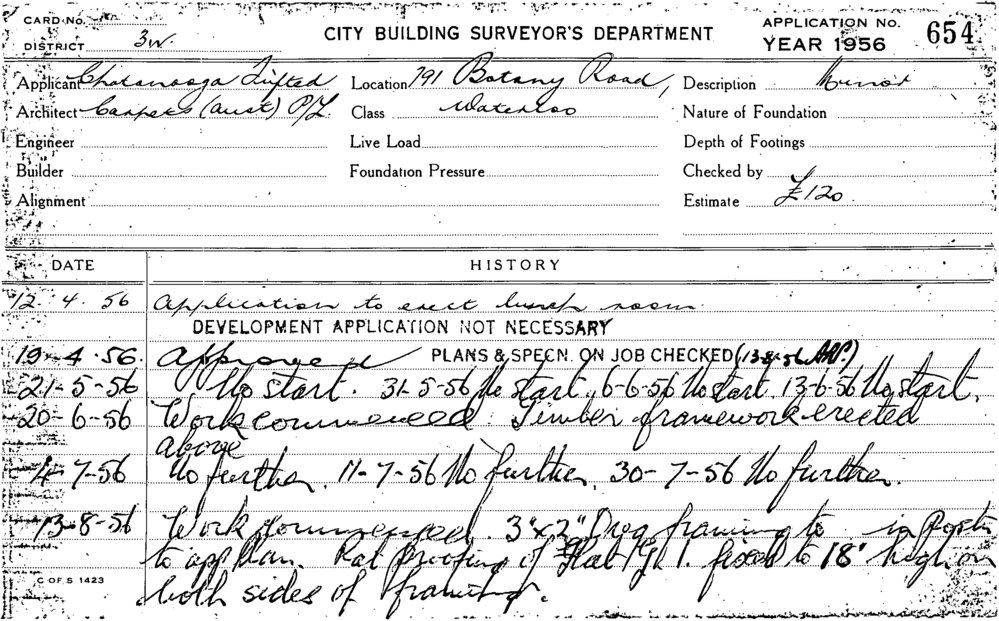 CARD No.
DISTRICT 3W.
CITY BUILDING SURVEYOR'S DEPARTMENT
APPLICATION No. 654
YEAR 1956
Applicant Chatanooga Tufted Location 791 Botany Road, Description Minor
Architect Carpets (Aust) P/L. Class Waterloo Nature of Foundation
Engineer Live Load Depth of Footings
Builder Foundation Pressure Checked by
Alignment Estimate £120.
DATE HISTORY
12 4 56 Application to erect lunch room
DEVELOPMENT APPLICATION NOT NECESSARY
19-4-56. Approved PLANS & SPECN. ON JOB CHECKED (13-8-56
21-5-56 No start. 31-5-56 No start. 6-6-56 No start. 13-6-56 No start.
20-6-56 Work commenced. Timber framework erected
above
4-7-56 No further. 11-7-56 No further. 30-7-56 No further.
13-8-56 Work commenced. 3"x2" framing to
to app plan. Rat proofing of Flat G.I. fixed to 18" high on
both sides of framing.
C OF S 1423